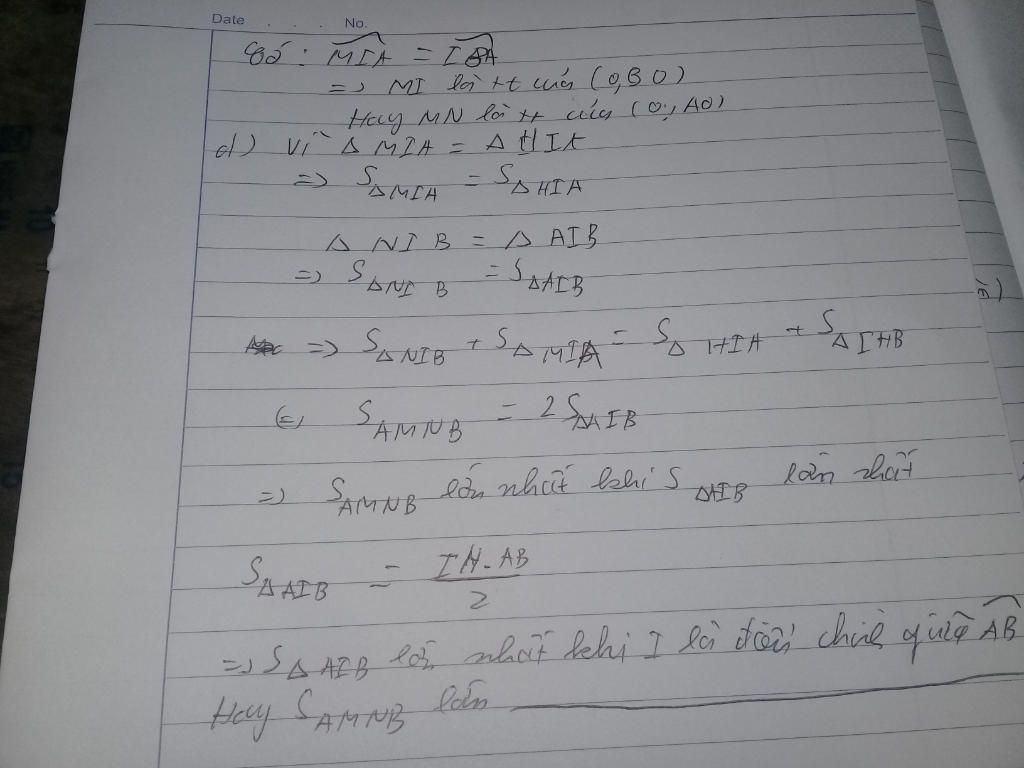 Date . . . No.
Có : MIA = IBA
=> MI là tt của (O,BO)
Hay MN là tt của (O; AO)
d) Vì Δ MIA = Δ HIA
=> S ΔMIA = S ΔHIA
Δ NIB = Δ AIB
=> S ΔNIB = S ΔAIB
=> S ΔNIB + S ΔMIA = S Δ HIA + S ΔIHB
S AMNB = 2 S ΔAIB
=> S AMNB lớn nhất khi S ΔAIB lớn nhất
S ΔAIB = IH. AB / 2
=> S ΔAIB lớn nhất khi I là điểm chính giữa AB
Hay S AMNB lớn